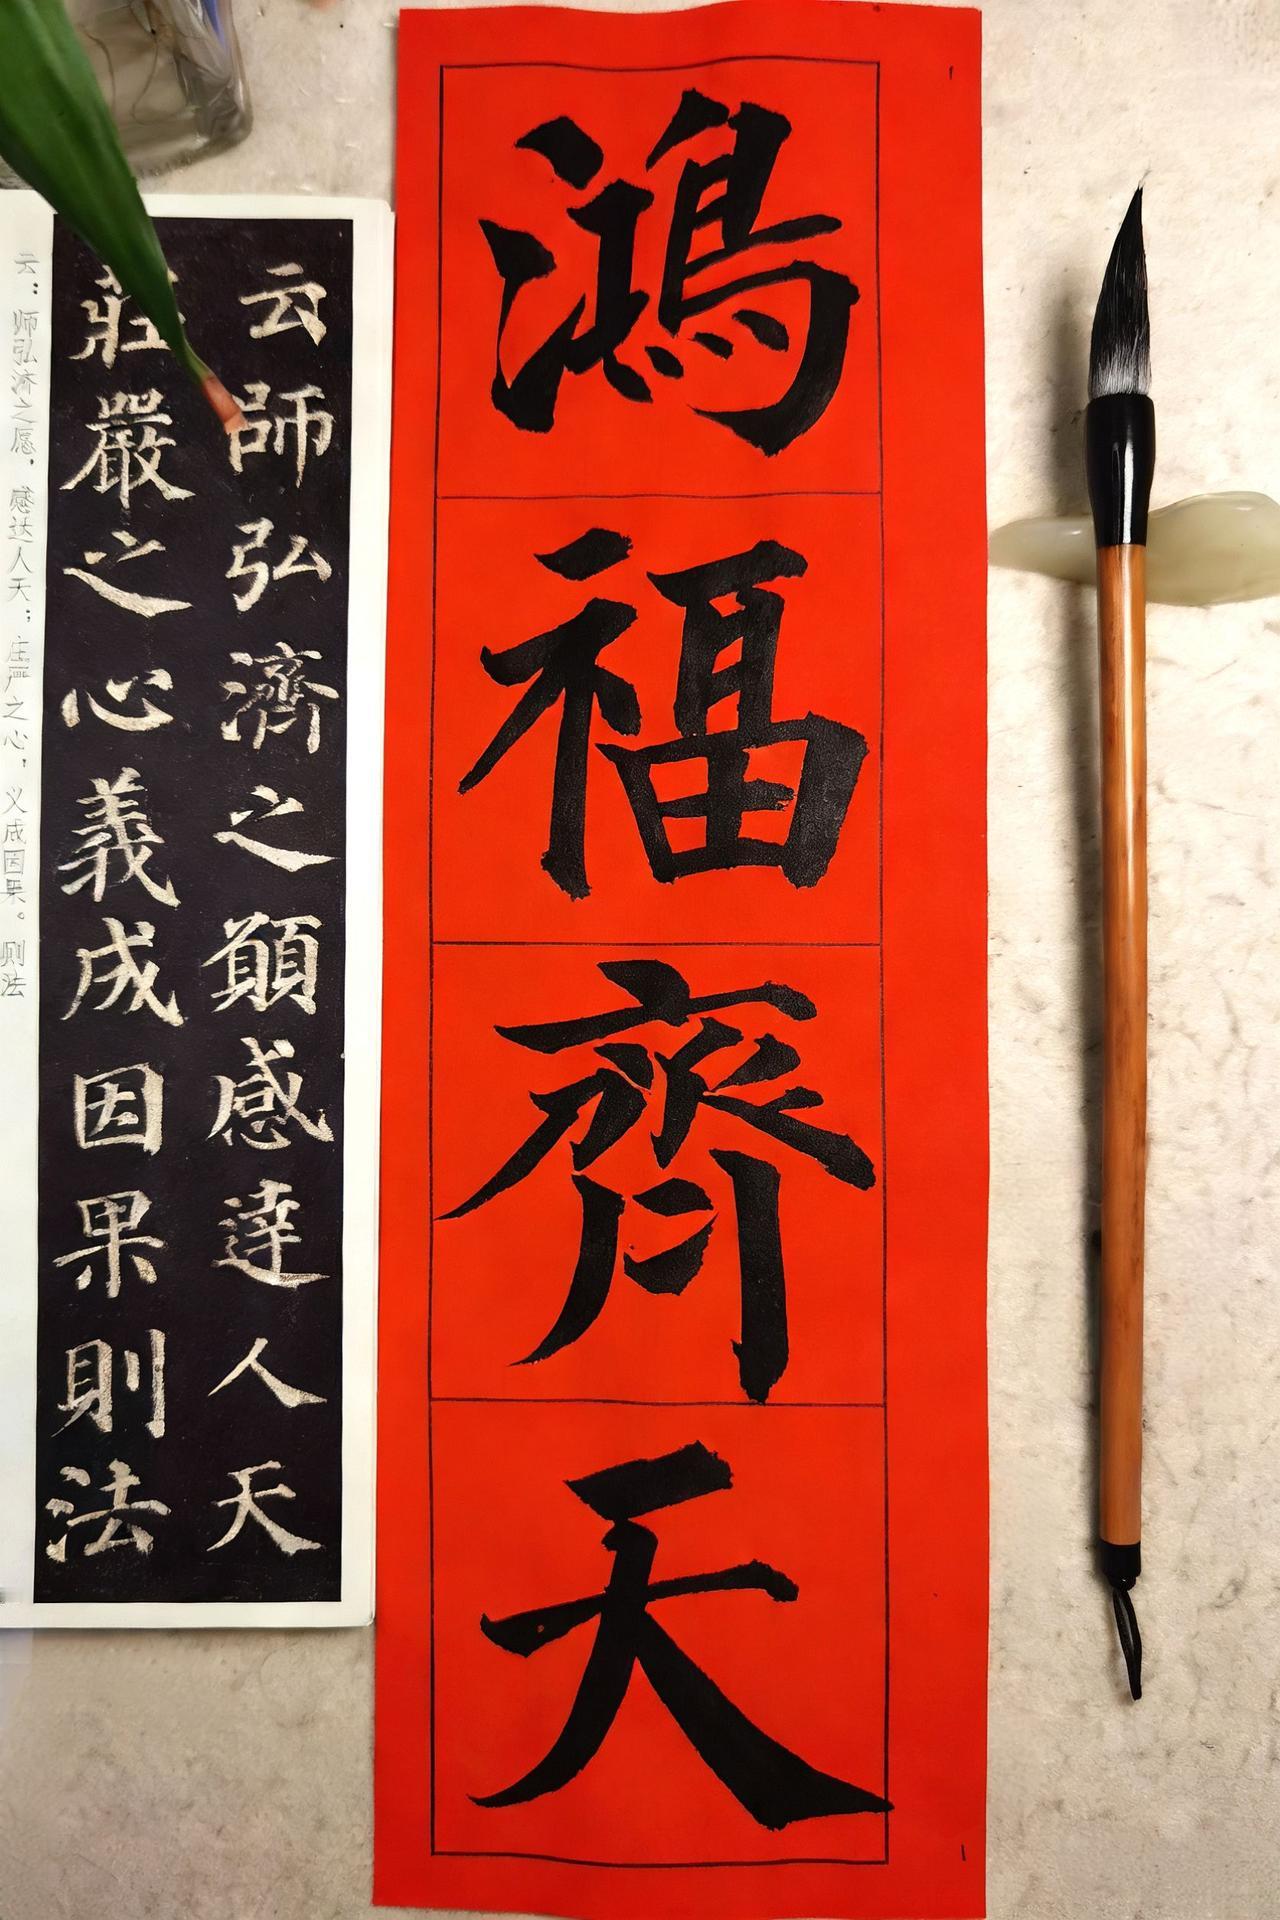 鴻福齊天
云師弘濟之願感達人天
莊嚴之心義成因果則法
云：师弘济之愿，感达人天；庄严之心，义成因果。则法